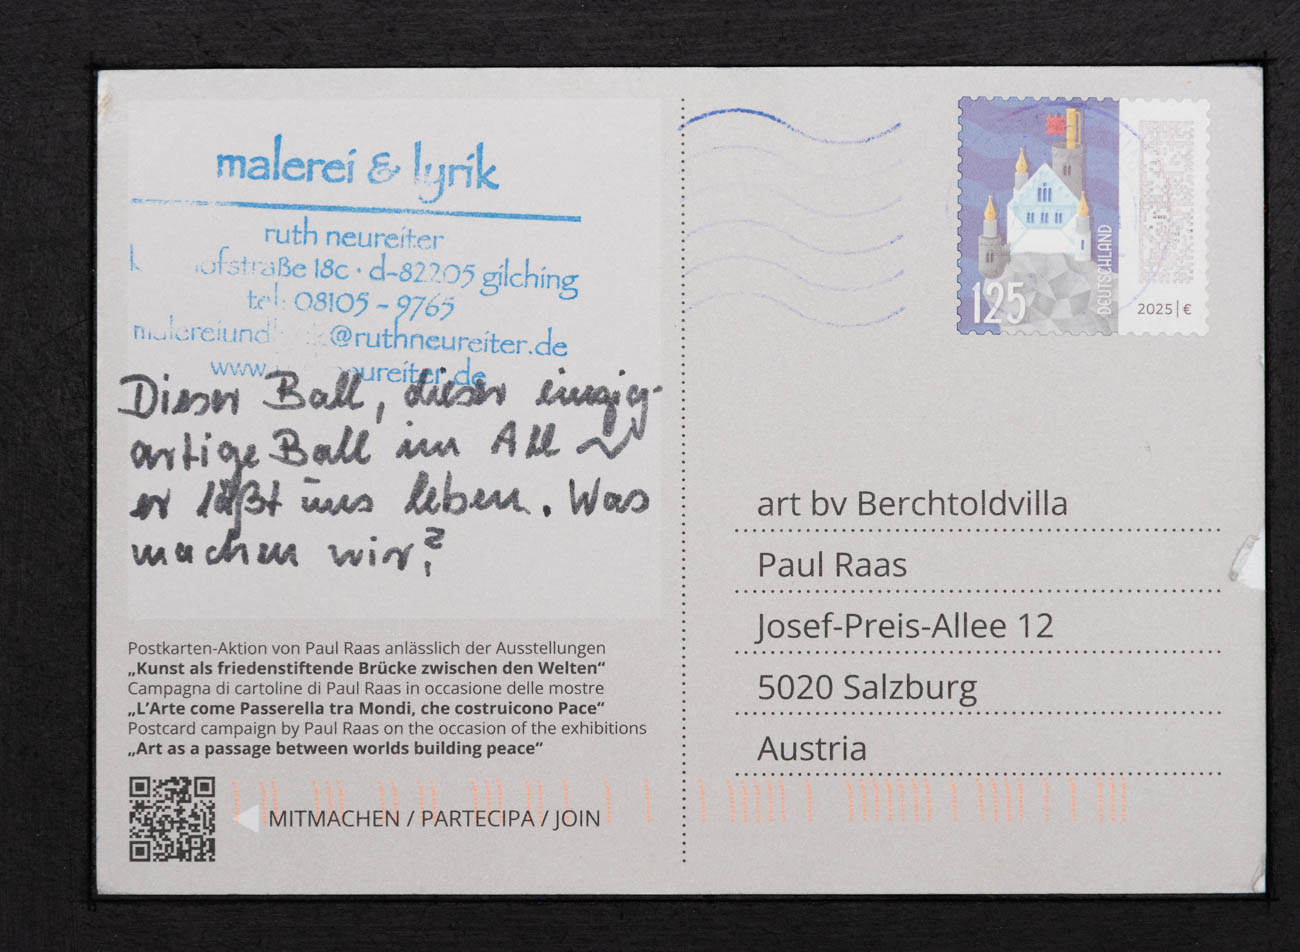 malerei & lyrik
ruth neureiter
18c · d-82205 gilching
tel: 08105 - 9765
@ruthneureiter.de
Dieser Ball, dieser einzig-
artige Ball im All ~
er läßt uns leben. Was
machen wir?
Postkarten-Aktion von Paul Raas anlässlich der Ausstellungen
„Kunst als friedenstiftende Brücke zwischen den Welten“
Campagna di cartoline di Paul Raas in occasione delle mostre
„L’Arte come Passerella tra Mondi, che costruicono Pace“
Postcard campaign by Paul Raas on the occasion of the exhibitions
„Art as a passage between worlds building peace“
MITMACHEN / PARTECIPA / JOIN
125
DEUTSCHLAND
2025 | €
art bv Berchtoldvilla
Paul Raas
Josef-Preis-Allee 12
5020 Salzburg
Austria